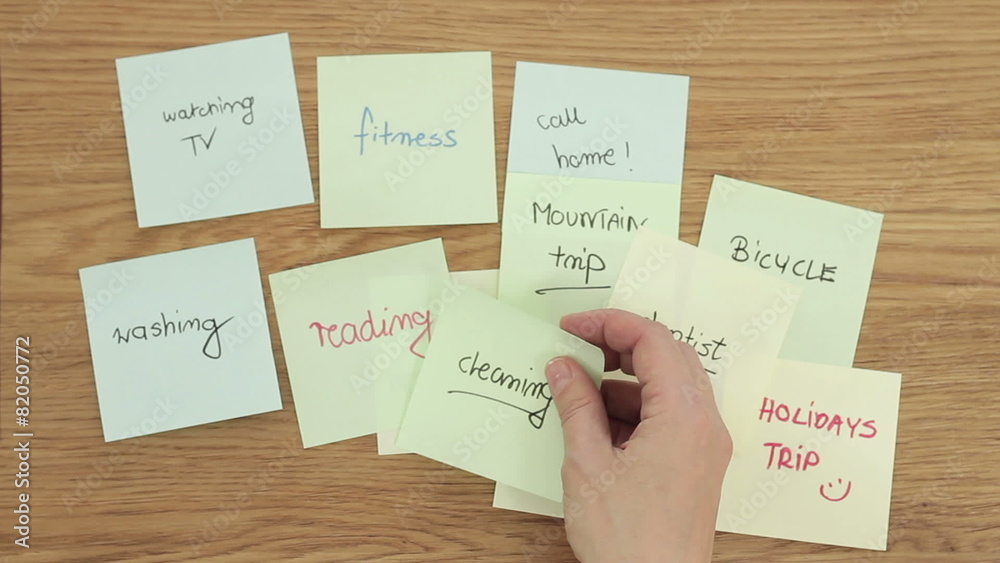 watching
TV
fitness
call
home!
MOUNTAIN
trip
BICYCLE
washing
reading
cleaning
HOLIDAYS
TRIP
Adobe Stock | #82050772